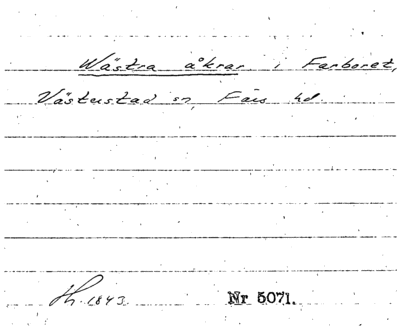 Wästra åkrar i Farboret,
Västerstad sn, Färs hd.
Hh. 1843. Nr 5071.